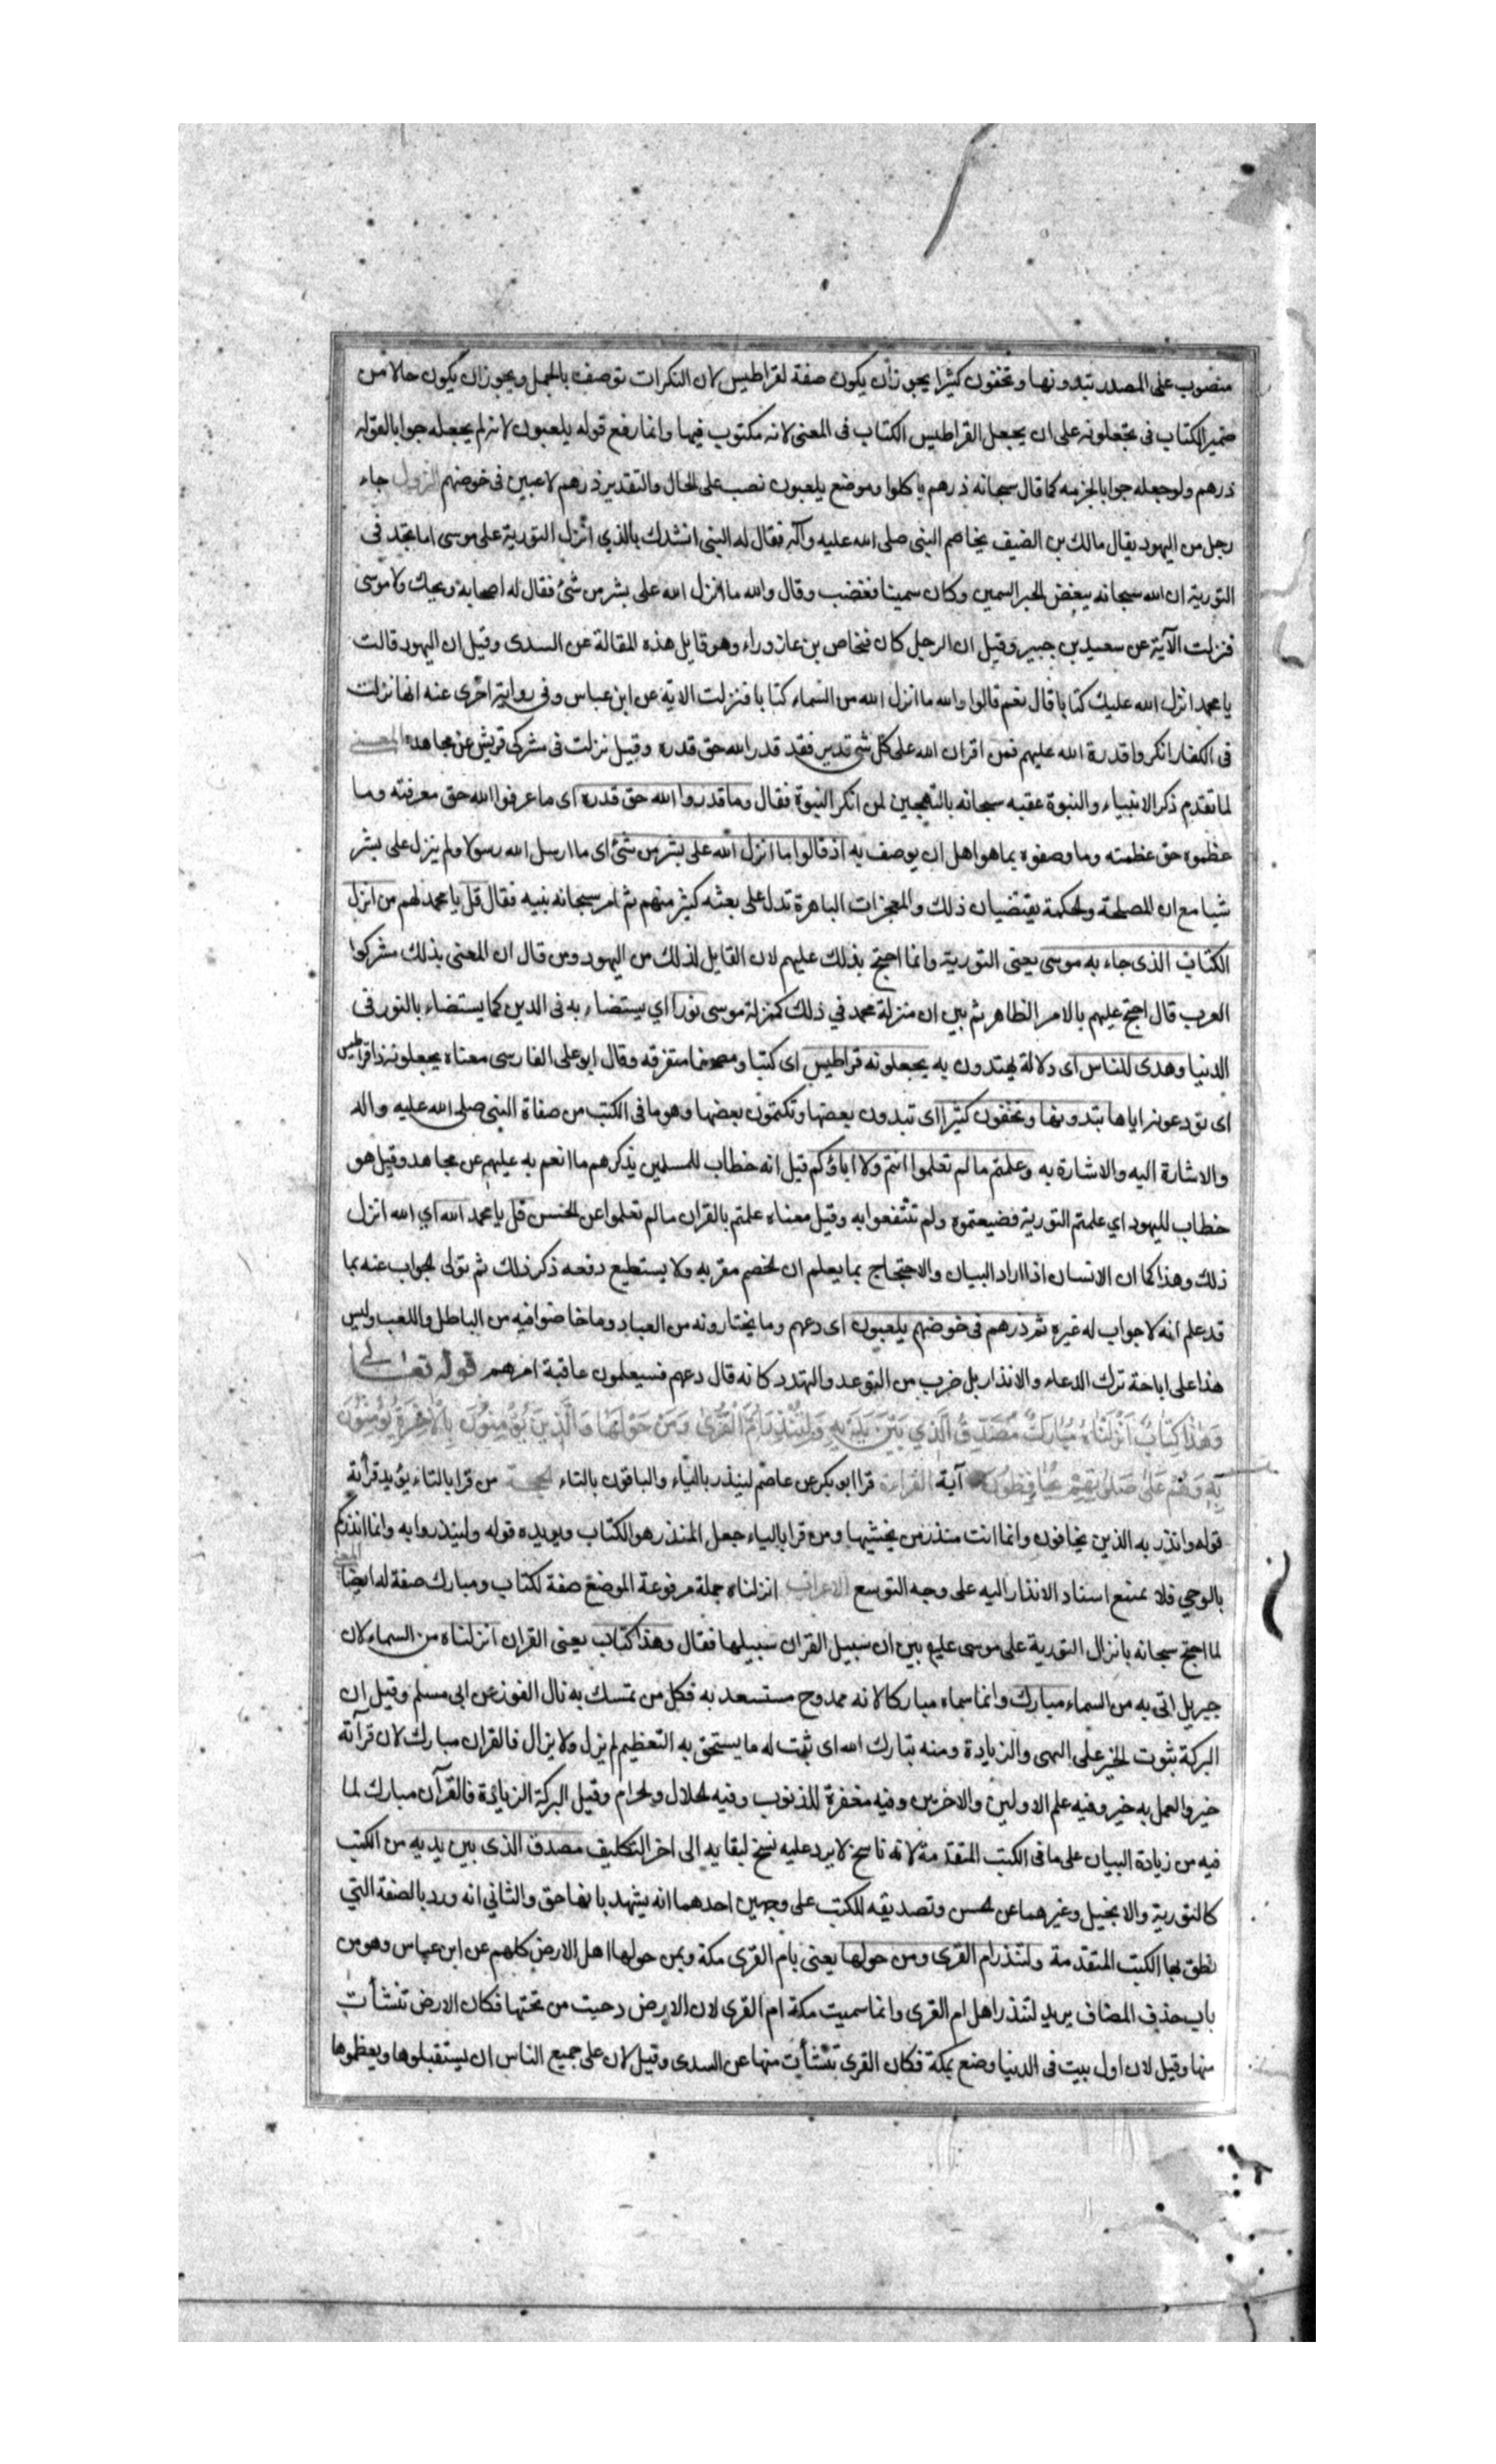 منصوب على المصدر تبدونها وتخفون كثيرا يجوز أن يكون صفة لقراطيس لان النكرات توصف بالجمل ويجوز ان يكون حالا من
ضمير الكتاب في تجعلونه على ان يجعل القراطيس الكتاب في المعنى لانه مكتوب فيها وانما رفع قوله يلعبون لانه لم يجعله جوابا لقوله
ذرهم ولو جعله جوابا لجزمه كما قال سبحانه ذرهم ياكلوا وموضع يلعبون نصب على الحال والتقدير ذرهم لاعبين في خوضهم النزول جاء
رجل من اليهود يقال مالك بن الضيف يخاصم النبي صلى الله عليه وآله فقال له النبي انشدك بالذي انزل التورية على موسى اما تجد في
التورية ان الله سبحانه يبغض الحبر السمين وكان سمينا فغضب وقال والله ما انزل الله على بشر من شئ فقال له اصحابه ويحك ولا موسى
فنزلت الآية عن سعيد بن جبير وقيل ان الرجل كان فنحاص بن عازوراء وهو قايل هذه المقالة عن السدى وقيل ان اليهود قالت
يا محمد انزل الله عليك كتابا قال نعم قالوا والله ما انزل الله من السماء كتابا فنزلت الاية عن ابن عباس وفي رواية اخرى عنه انها نزلت
في الكفار انكروا قدرة الله عليهم فمن اقر ان الله على كل شي قدير فقد قدر الله حق قدره وقيل نزلت في مشركى قريش عن مجاهد المعنى
لما تقدم ذكر الانبياء والنبوة عقبه سبحانه بالتهجين لمن انكر النبوة فقال وما قدروا الله حق قدره اى ما عرفوا الله حق معرفته وما
عظموه حق عظمته وما وصفوه بما هو اهل ان يوصف به اذ قالوا ما انزل الله على بشر من شئ اى ما ارسل الله رسولا ولم ينزل على بشر
شيا مع ان المصلحة والحكمة يقتضيان ذلك والمعجزات الباهرة تدل على بعثه كثير منهم ثم امر سبحانه نبيه فقال قل يا محمد لهم من انزل
الكتاب الذى جاء به موسى يعنى التورية وانما احتج بذلك عليهم لان القايل لذلك من اليهود ومن قال ان المعنى بذلك مشركوا
العرب قال احتج عليهم بالامر الظاهر ثم بين ان منزلة محمد في ذلك كمنزلة موسى نورا اي يستضاء به في الدين كما يستضاء بالنور في
الدنيا وهدى للناس اى دلالة يهتدون به يجعلونه قراطيس اى كتبا وصحفا متفرقه وقال ابو على الفارسى معناه يجعلونه ذا قراطيس
اى تودعونه اياها تبدونها وتخفون كثيرا اى تبدون بعضها وتكتمون بعضها وهو ما في الكتب من صفاة النبي صلى الله عليه واله
والاشارة اليه والاشارة به وعلمتم ما لم تعلموا انتم ولا اباؤكم قيل انه خطاب للمسلمين يذكرهم ما انعم به عليهم عن مجاهد وقيل هو
خطاب لليهود اي علمتم التورية فضيعتموه ولم تنتفعوا به وقيل معناه علمتم بالقران ما لم تعلموا عن الحسن قل يا محمد الله اي الله انزل
ذلك وهذا كما ان الانسان اذا اراد البيان والاحتجاج بما يعلم ان الخصم مقر به ولا يستطيع دفعه ذكر ذلك ثم تولى الجواب عنه بما
قد علم انه لا جواب له غيره ثم ذرهم في خوضهم يلعبون اى دعهم وما يختارونه من العباد وما خاضوا فيه من الباطل واللعب وليس
هذا على اباحة ترك الدعاء والانذار بل ضرب من التوعد والتهدد كانه قال دعهم فسيعلمون عاقبة امرهم قوله تعالى
وَهٰذَا كِتَابٌ اَنْزَلْنَاهُ مُبَارَكٌ مُصَدِّقُ الَّذِي بَيْنَ يَدَيْهِ وَلِتُنْذِرَ اُمَّ الْقُرٰى وَمَنْ حَوْلَهَا وَالَّذِينَ يُؤْمِنُونَ بِالْاٰخِرَةِ يُؤْمِنُونَ
بِهِ وَهُمْ عَلٰى صَلٰوتِهِمْ يُحَافِظُونَ آية القراءة قرا ابو بكر عن عاصم لينذر بالياء والباقون بالتاء الحجة من قرا بالتاء يؤيد قرأته
قوله وانذر به الذين يخافون وانما انت منذر من يخشيها ومن قرا بالياء جعل المنذر هو الكتاب ويويده قوله ولينذروا به وانما انذركم
بالوحي فلا يمتنع اسناد الانذار اليه على وجه التوسع الاعراب انزلناه جملة مرفوعة الموضع صفة لكتاب ومبارك صفة له ايضا المعنى
لما احتج سبحانه بانزال التورية على موسى عليه بين ان سبيل القران سبيلها فقال وهذا كتاب يعنى القران انزلناه من السماء لان
جبريل اتى به من السماء مبارك وانما سماه مباركا لانه ممدوح مستسعد به فكل من تمسك به نال الفوز عن ابى مسلم وقيل ان
البركة ثبوت الخير على النمى والزيادة ومنه تبارك الله اى ثبت له ما يستحق به التعظيم لم يزل ولا يزال فالقران مبارك لان قرآته
خير والعمل به خير وفيه علم الاولين والاخرين وفيه مغفرة للذنوب وفيه الحلال والحرام وقيل البركة الزيادة فالقرآن مبارك لما
فيه من زيادة البيان على ما في الكتب المتقدمة لانه ناسخ لا يرد عليه نسخ لبقايه الى اخر التكليف مصدق الذى بين يديه من الكتب
كالتورية والانجيل وغيرهما عن الحسن وتصديقه للكتب على وجهين احدهما انه يشهد بانها حق والثاني انه ورد بالصفة التي
نطق بها الكتب المتقدمة ولتنذر ام القرى ومن حولها يعنى بام القرى مكة وبمن حولها اهل الارض كلهم عن ابن عباس وهو من
باب حذف المضاف يريد لتنذر اهل ام القرى وانما سميت مكة ام القرى لان الارض دحيت من تحتها فكان الارض تنشأت
منها وقيل لان اول بيت في الدنيا وضع بمكة فكان القرى تنشأت منها عن السدى وقيل لان على جميع الناس ان يستقبلوها ويعظموها